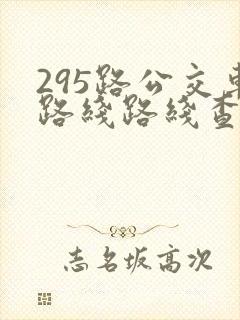 295路公交车
路线路线查
志名坂高次